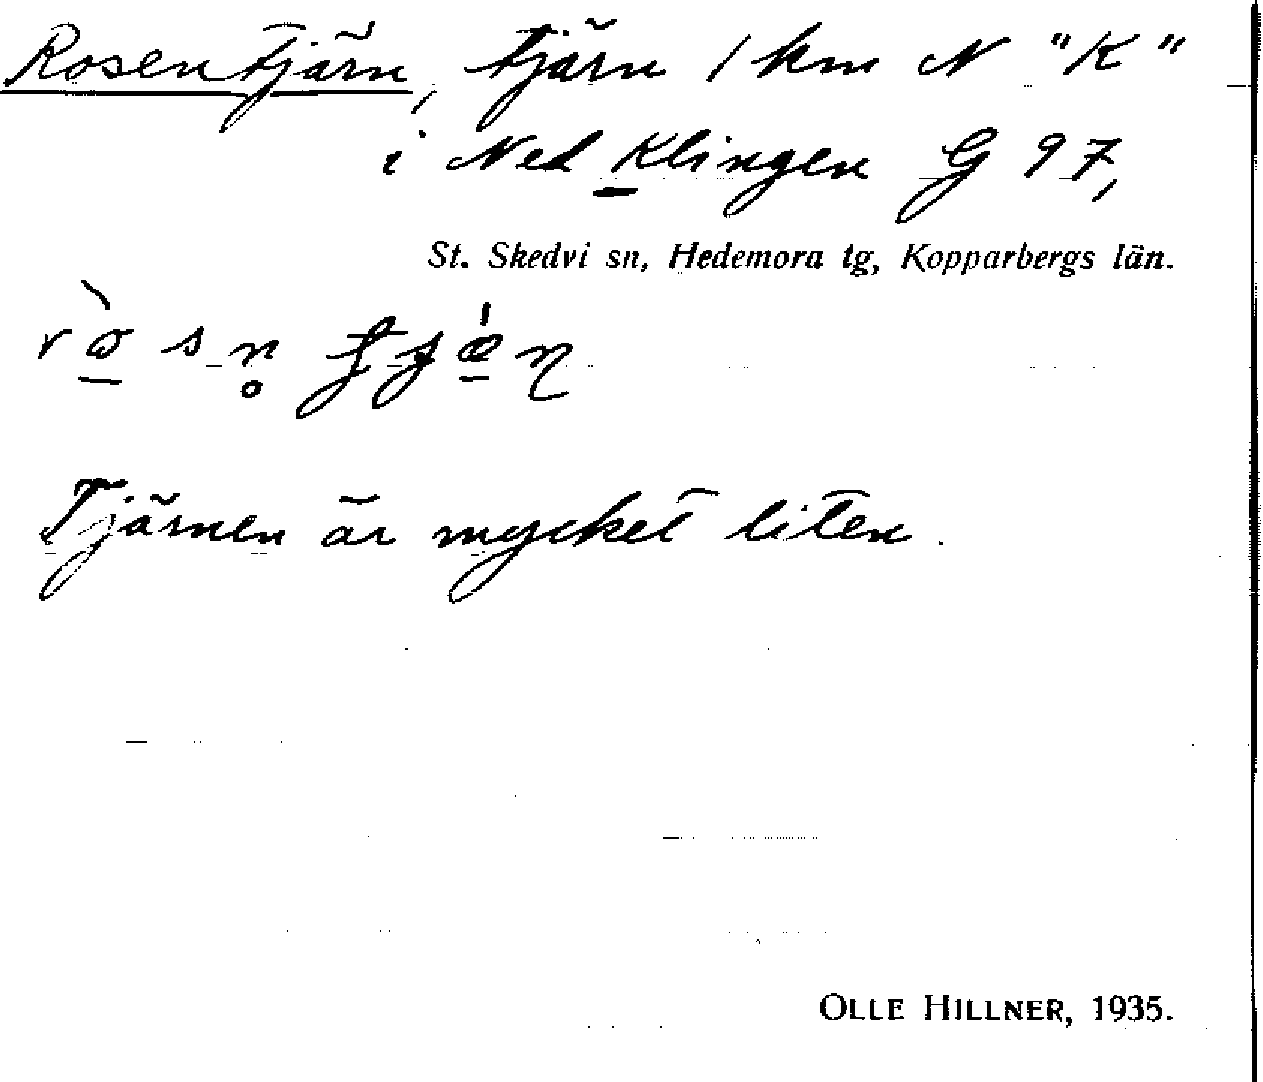 Rosentjärn, tjärn 1 km N "K"
i Ned Klingen G 97,
St. Skedvi sn, Hedemora tg, Kopparbergs län.
Tjärnen är mycket liten.
OLLE HILLNER, 1935.